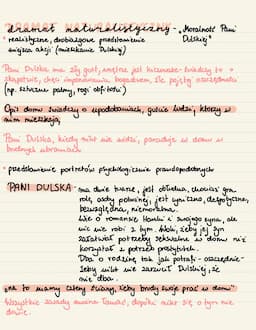 dramat naturalistyczny - „Moralność Pani Dulskiej"
• realistyczne, drobiazgowe przedstawienie
miejsca akcji (mieszkanie Dulskiej)
Pani Dulska ma zły gust, wnętrze jest
skąpstwo, chęć imponowania, bogactwem, źle pojęty
(np. sztuczne palmy, rogi obfitości)
Opis domu świadczy o upodobaniach, guście ludzi, którzy w
nim mieszkają
Pani Dulska, kiedy nikt nie widzi, paraduje w domu w
brudnych ubraniach
• przedstawienie portretów psychologicznie prawdopodobnych
PANI DULSKA - ma dwie twarze, jest obłudna, chociaż gra
rolę osoby pobożnej, jest cyniczna, despotyczna,
bezwzględna, niemoralna.
Wie o romansie Hanki i swojego syna, ale
nic nie robi z tym. Woli, żeby jej syn
zaspokajał potrzeby seksualne w domu niż
korzystał z potrzeb
Dba o rodzinę tak jak potrafi - oszczędnie
żeby nikt nie zarzucił Dulskiej, że
nie dba.
„na to mamy cztery ściany, żeby brudy swoje prać w domu"
Wszystkie zasady można łamać, dopóki nikt się o tym nie
dowie.